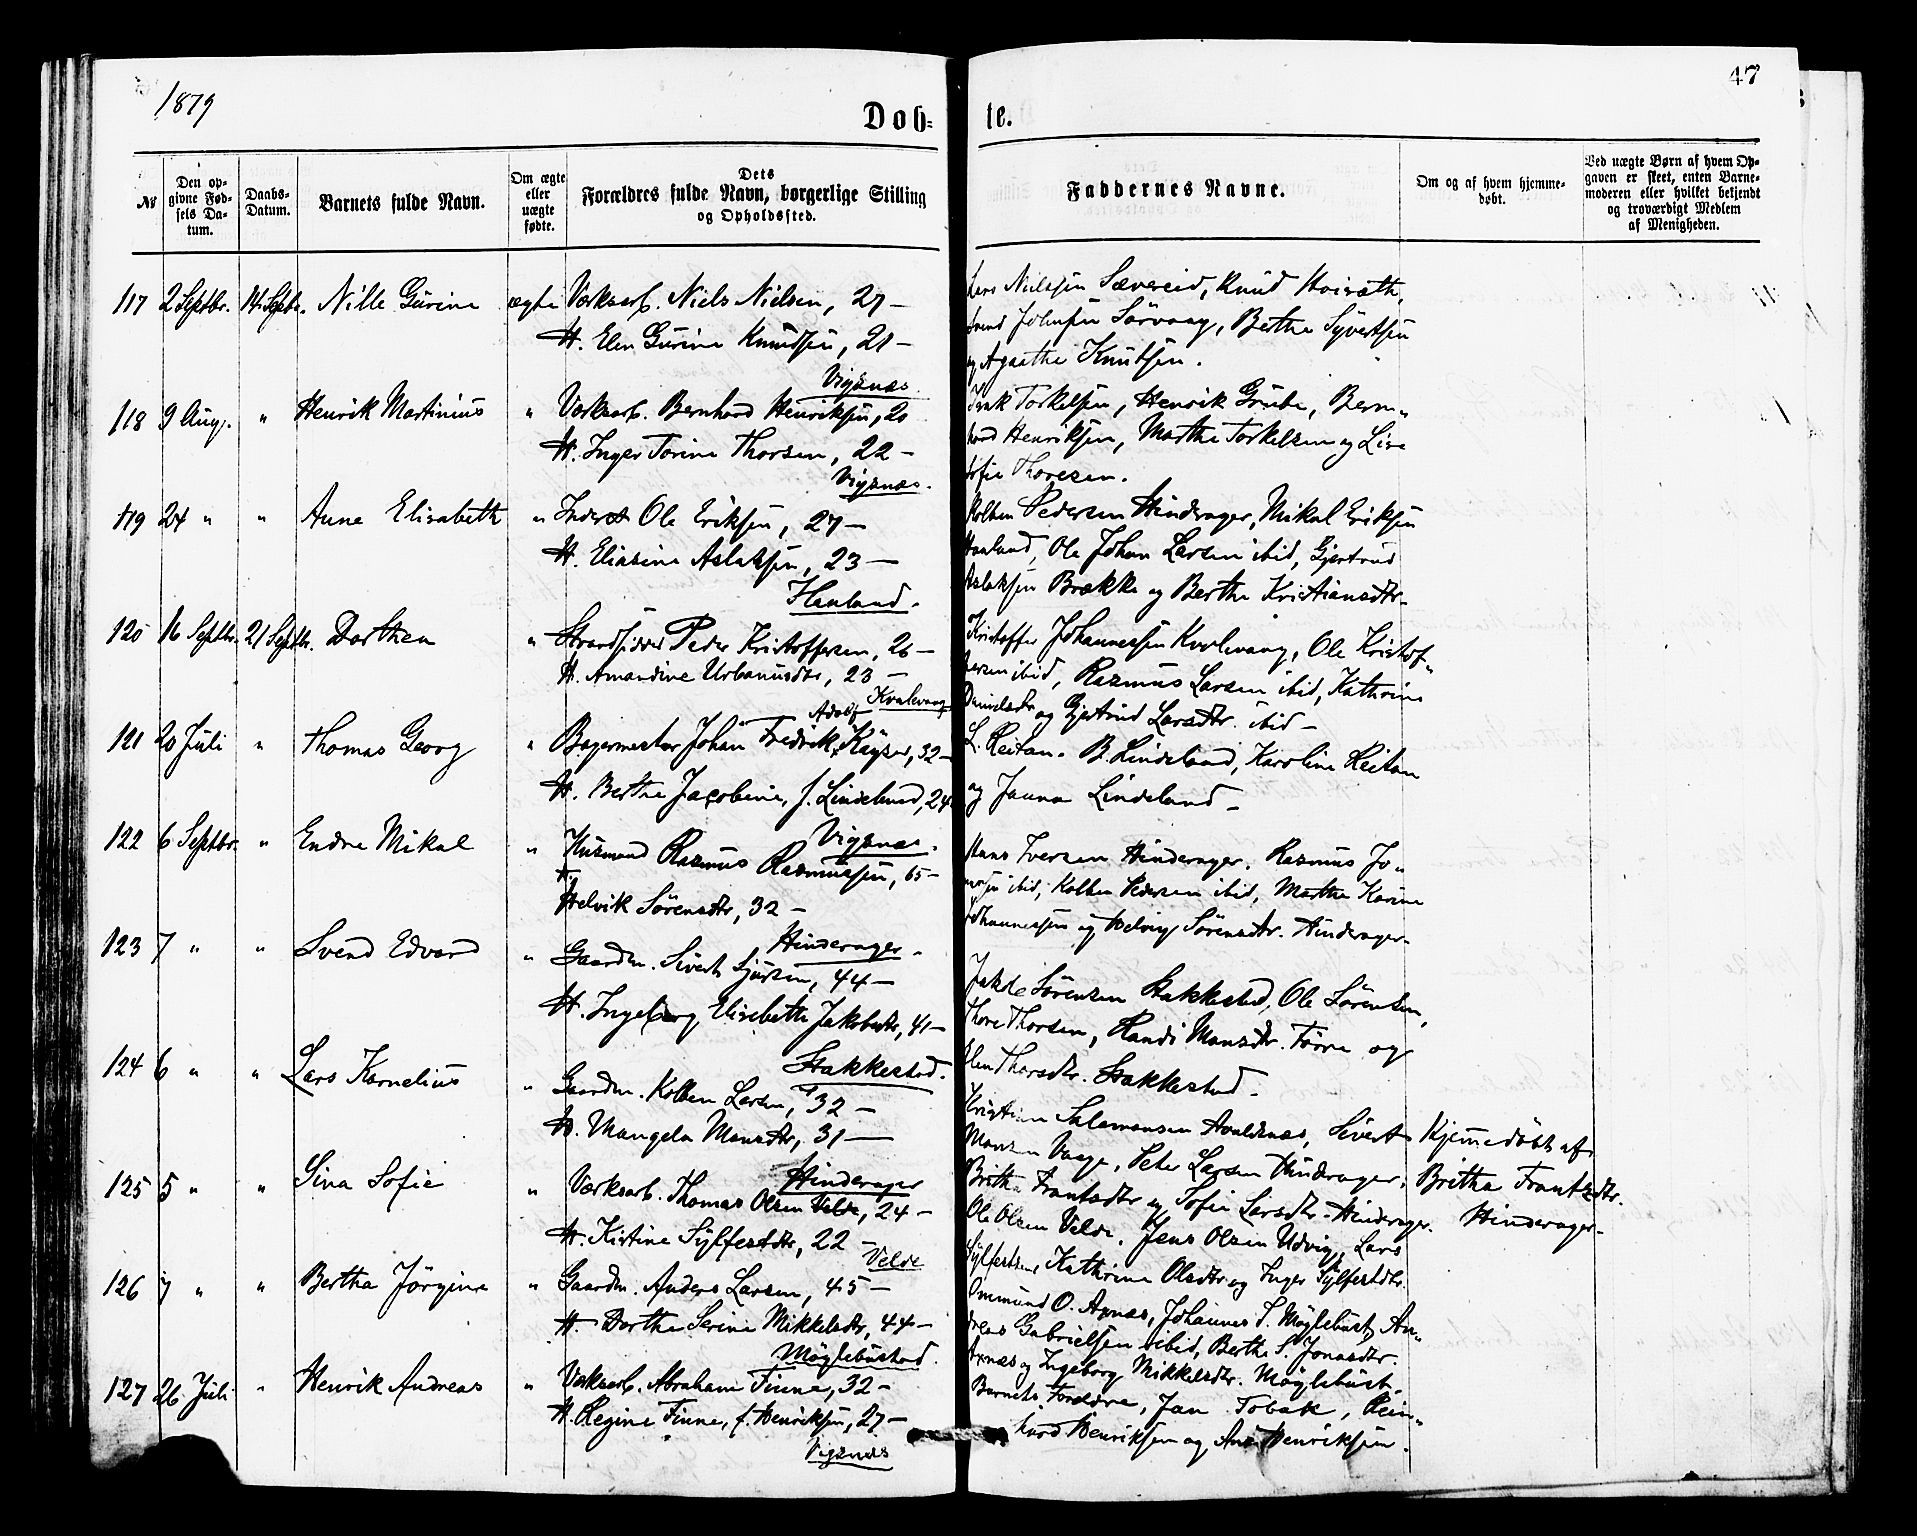 1879
47
Døb-
te.
№
Den op-
givne Fød-
sels Da-
tum.
Daabs-
Datum.
Barnets fulde Navn.
Om ægte
eller
uægte
fødte.
Dets
Forældres fulde Navn, borgerlige Stilling
og Opholdssted.
Faddernes Navne.
Om og af hvem hjemme-
døbt.
Ved uægte Børn af hvem Op-
gaven er skeet, enten Barne-
moderen eller hvilket bekjendt
og troværdigt Medlem
af Menigheden.
117 2 Septbr. 14 Septbr. Nille Gurine ægte Værksarb. Niels Nielsen, 27 –
H. Elen Gurine Knudsen, 21 –
Vigsnæs.
Lars Nielsen Sævereid, Knud
Svend Johnsen Sørvaag, Berthe Syvertsen
og Agathe Knutsen.
118 9 Aug. " Henrik Martinius " Værksarb. Bernhard Henriksen, 20
H. Inger Torine Thorsen, 22 –
Vigsnæs.
Torkelsen, Henrik Grube, Bern-
hard Henriksen, Marthe Torkelsen og Live
Sofie Thoresen.
119 24 " " Anne Elisabeth " Inderst Ole Eriksen, 27 –
H. Eliasine Aslaksen, 23 –
Hauland.
Kolben Pedersen Hinderager, Mikal Eriksen
Hauland, Ole Johan Larsen ibid, Gjertrud
Aslaksen Brække og Berthe Kristiansdtr.
120 16 Septbr. 21 Septbr. Dorthea " Strandsidder Peder Kristoffersen, 26 –
H. Amandine Urbanusdtr, 23 –
Kvalevaag
Kristoffer Johannessen Kvalevaag, Ole Kristof-
fersen ibid, Rasmus Larsen ibid, Kathrine
Danielsdtr og Gjertrud Larsdtr. ibid –
121 20 Juli " Thomas Georg " Bagermester Johan Fredrik Adolf Kayser, 32 –
H. Berthe Jacobine, f. Lindeland, 24
Vigsnæs.
L. Reitan. B. Lindeland, Karoline Reitan
og Janna Lindeland –
122 6 Septbr. " Endre Mikal " Husmand Rasmus Rasmussen, 65 –
H. Helvik Sørensdtr, 32 –
Hinderager.
Hans Iversen Hinderager. Rasmus Jo-
nassen ibid, Kolben Pedersen ibid, Marthe Karine
Johannessen og Helvig Sørensdtr. Hinderager.
123 7 " " Svend Edvard " Gaardm. Sivert Sjursen, 44 –
H. Ingeborg Elisabeth Jakobsdtr, 41 –
Stakkestad.
Sørensen Stakkestad, Ole Sørensen,
Thore Thorsen, Randi Monsdtr. Førre og
Elen Thorsdtr. Stakkestad –
124 6 " " Lars Kornelius " Gaardm. Kolben Larsen, 32 –
H. Mangela Monsdtr, 31 –
Hinderager
Kristian Salamonsen Avaldsnæs, Sivert
Monsen Vaage, Peter Larsen Hinderager,
Britha Frantsdtr og Sofie Larsdtr. Hinderager.
Hjemmedøbt af
Britha Frantsdtr.
Hinderager –
125 5 " " Sina Sofie " Værksarb. Thomas Olsen Velde, 24 –
H. Kistine Sylfestdtr, 22 –
Velde
Ole Olsen Velde, Jens Olsen Udvig, Lars
Sylfestsen, Kathrine Olsdtr og Inger Sylfestdtr.
126 7 " " Bertha Jørgine " Gaardm. Anders Larsen, 45 –
H. Dorthe Serine Mikkelsdtr, 44 –
Møglebustad.
Ommund O. Axnæs, Johannes S. Møglebust, An-
dreas Gabrielsen ibid, Berthe S. Jonasdtr.
Axnæs og Ingeborg Mikkelsdtr. Møglebust.
127 26 Juli " Henrik Andreas " Værksarb. Abraham Finne, 32 –
H. Regine Finne, f. Henriksen, 27 –
Vigsnæs
Barnets Forældre, Jan Tobak, Rein-
hard Henriksen og Ane Henriksen.